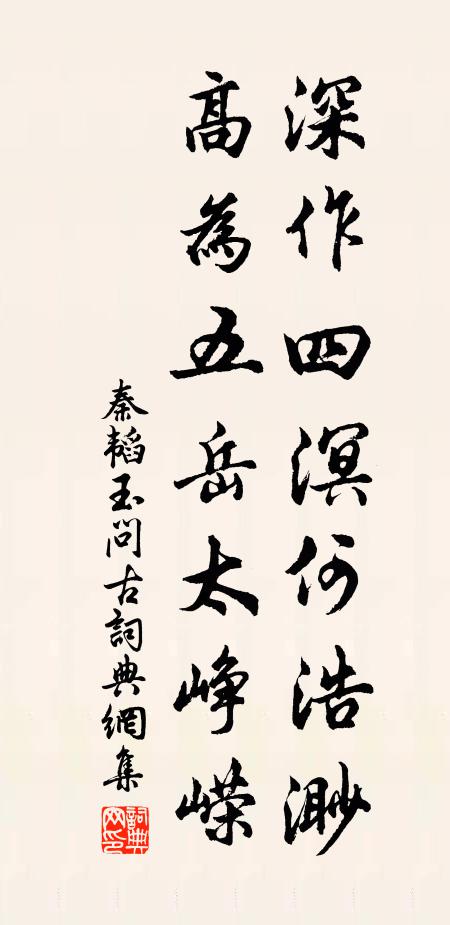 深作四溟何浩渺
高為五岳太峥嵘
秦韜玉問古詞典網集
詞典網印